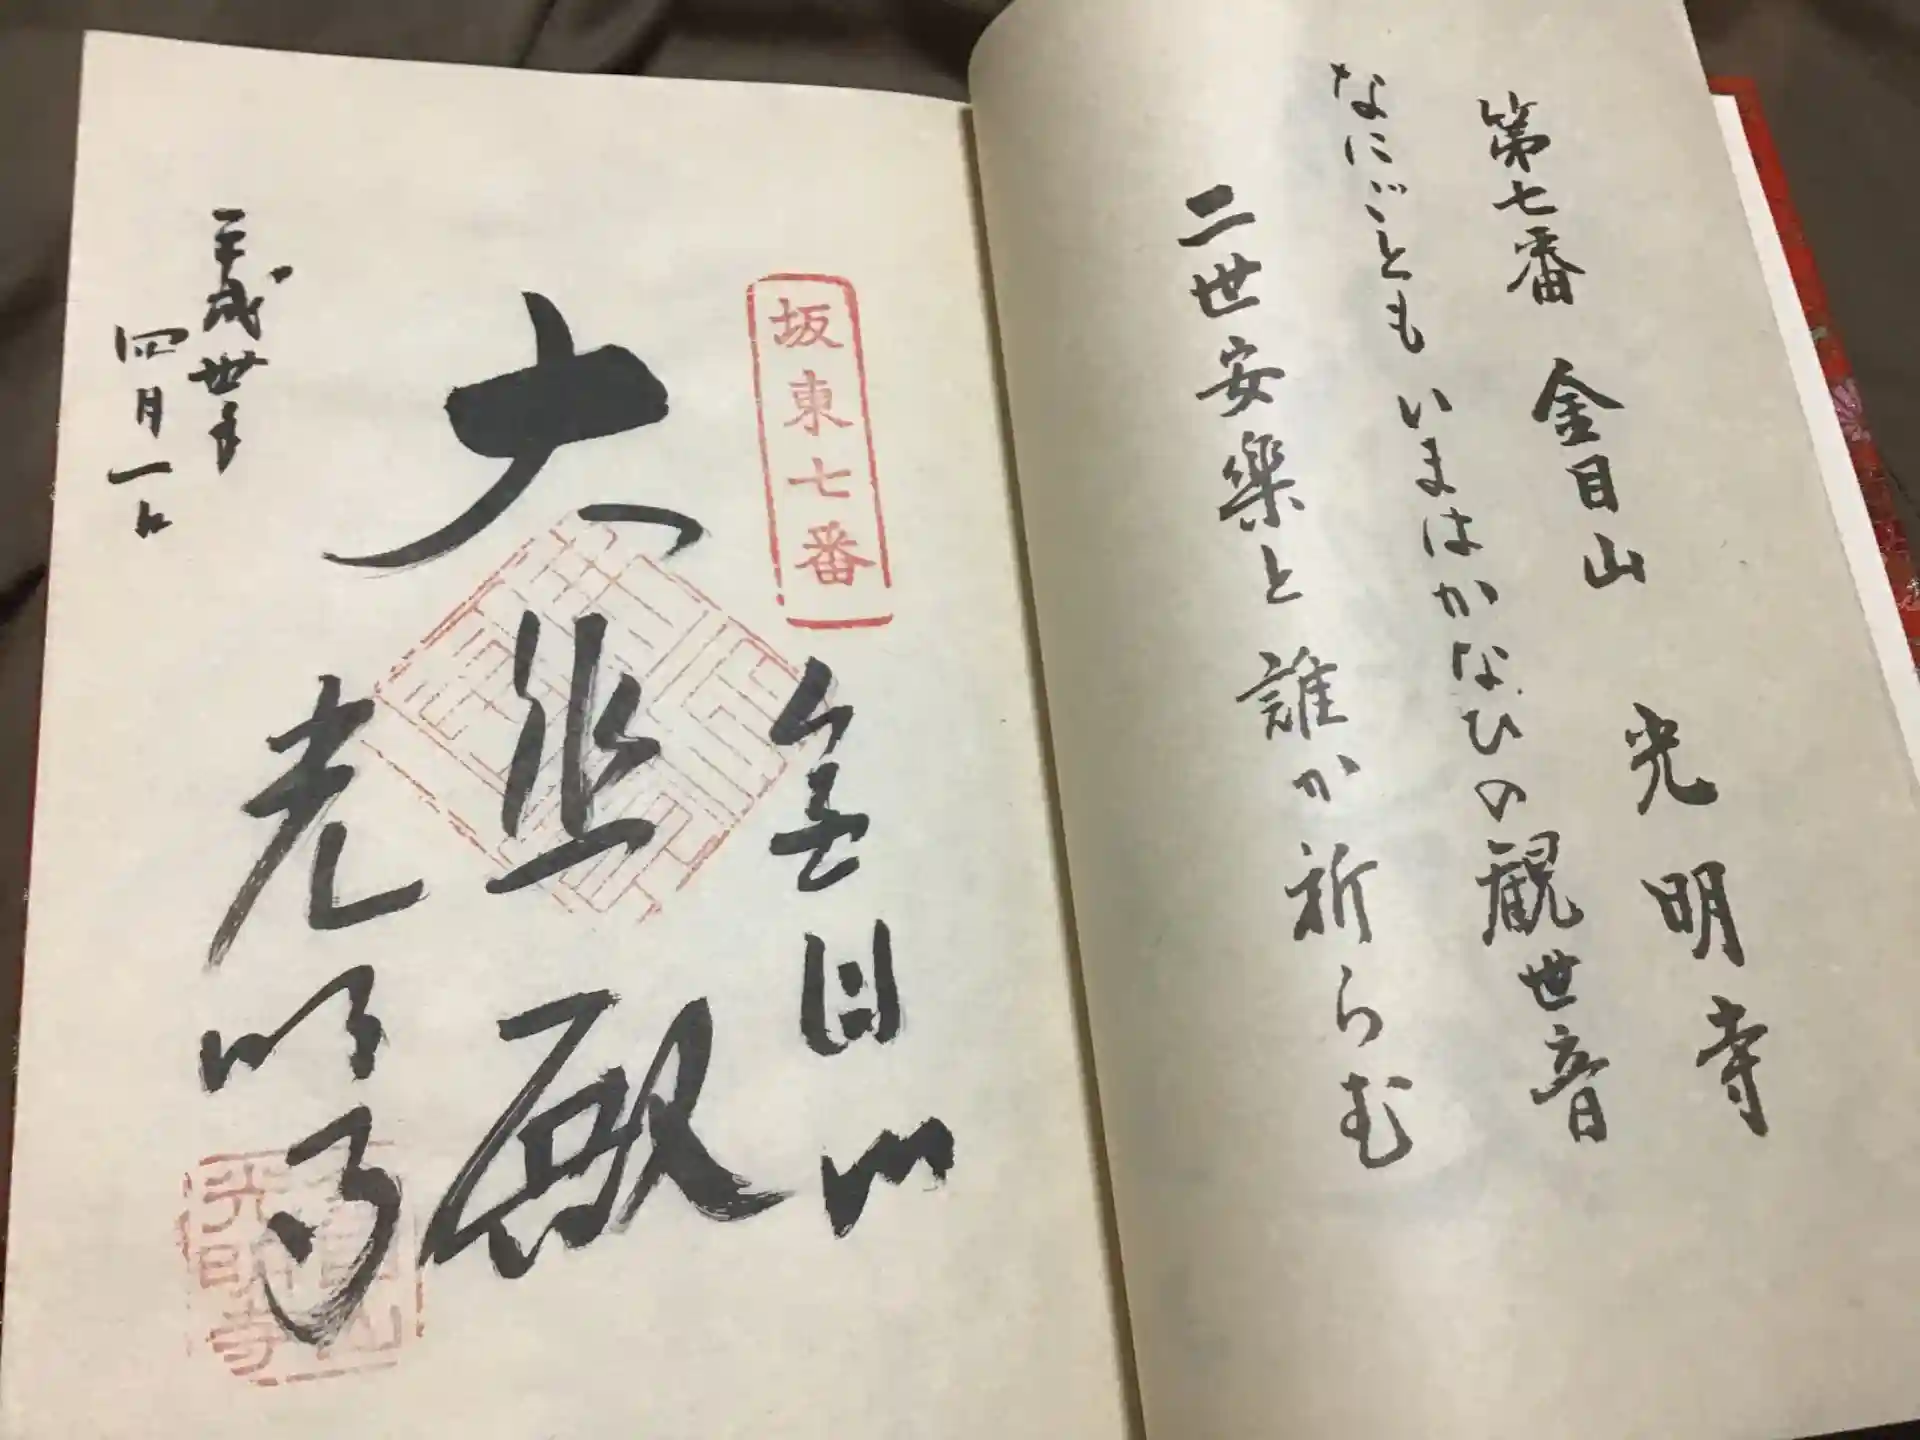 第七番 金目山 光明寺
なにごとも いまはかなひの観世音
二世安楽と 誰か祈らむ
坂東七番
金目山
大悲殿
光明寺
平成卅年
四月一日
光明寺